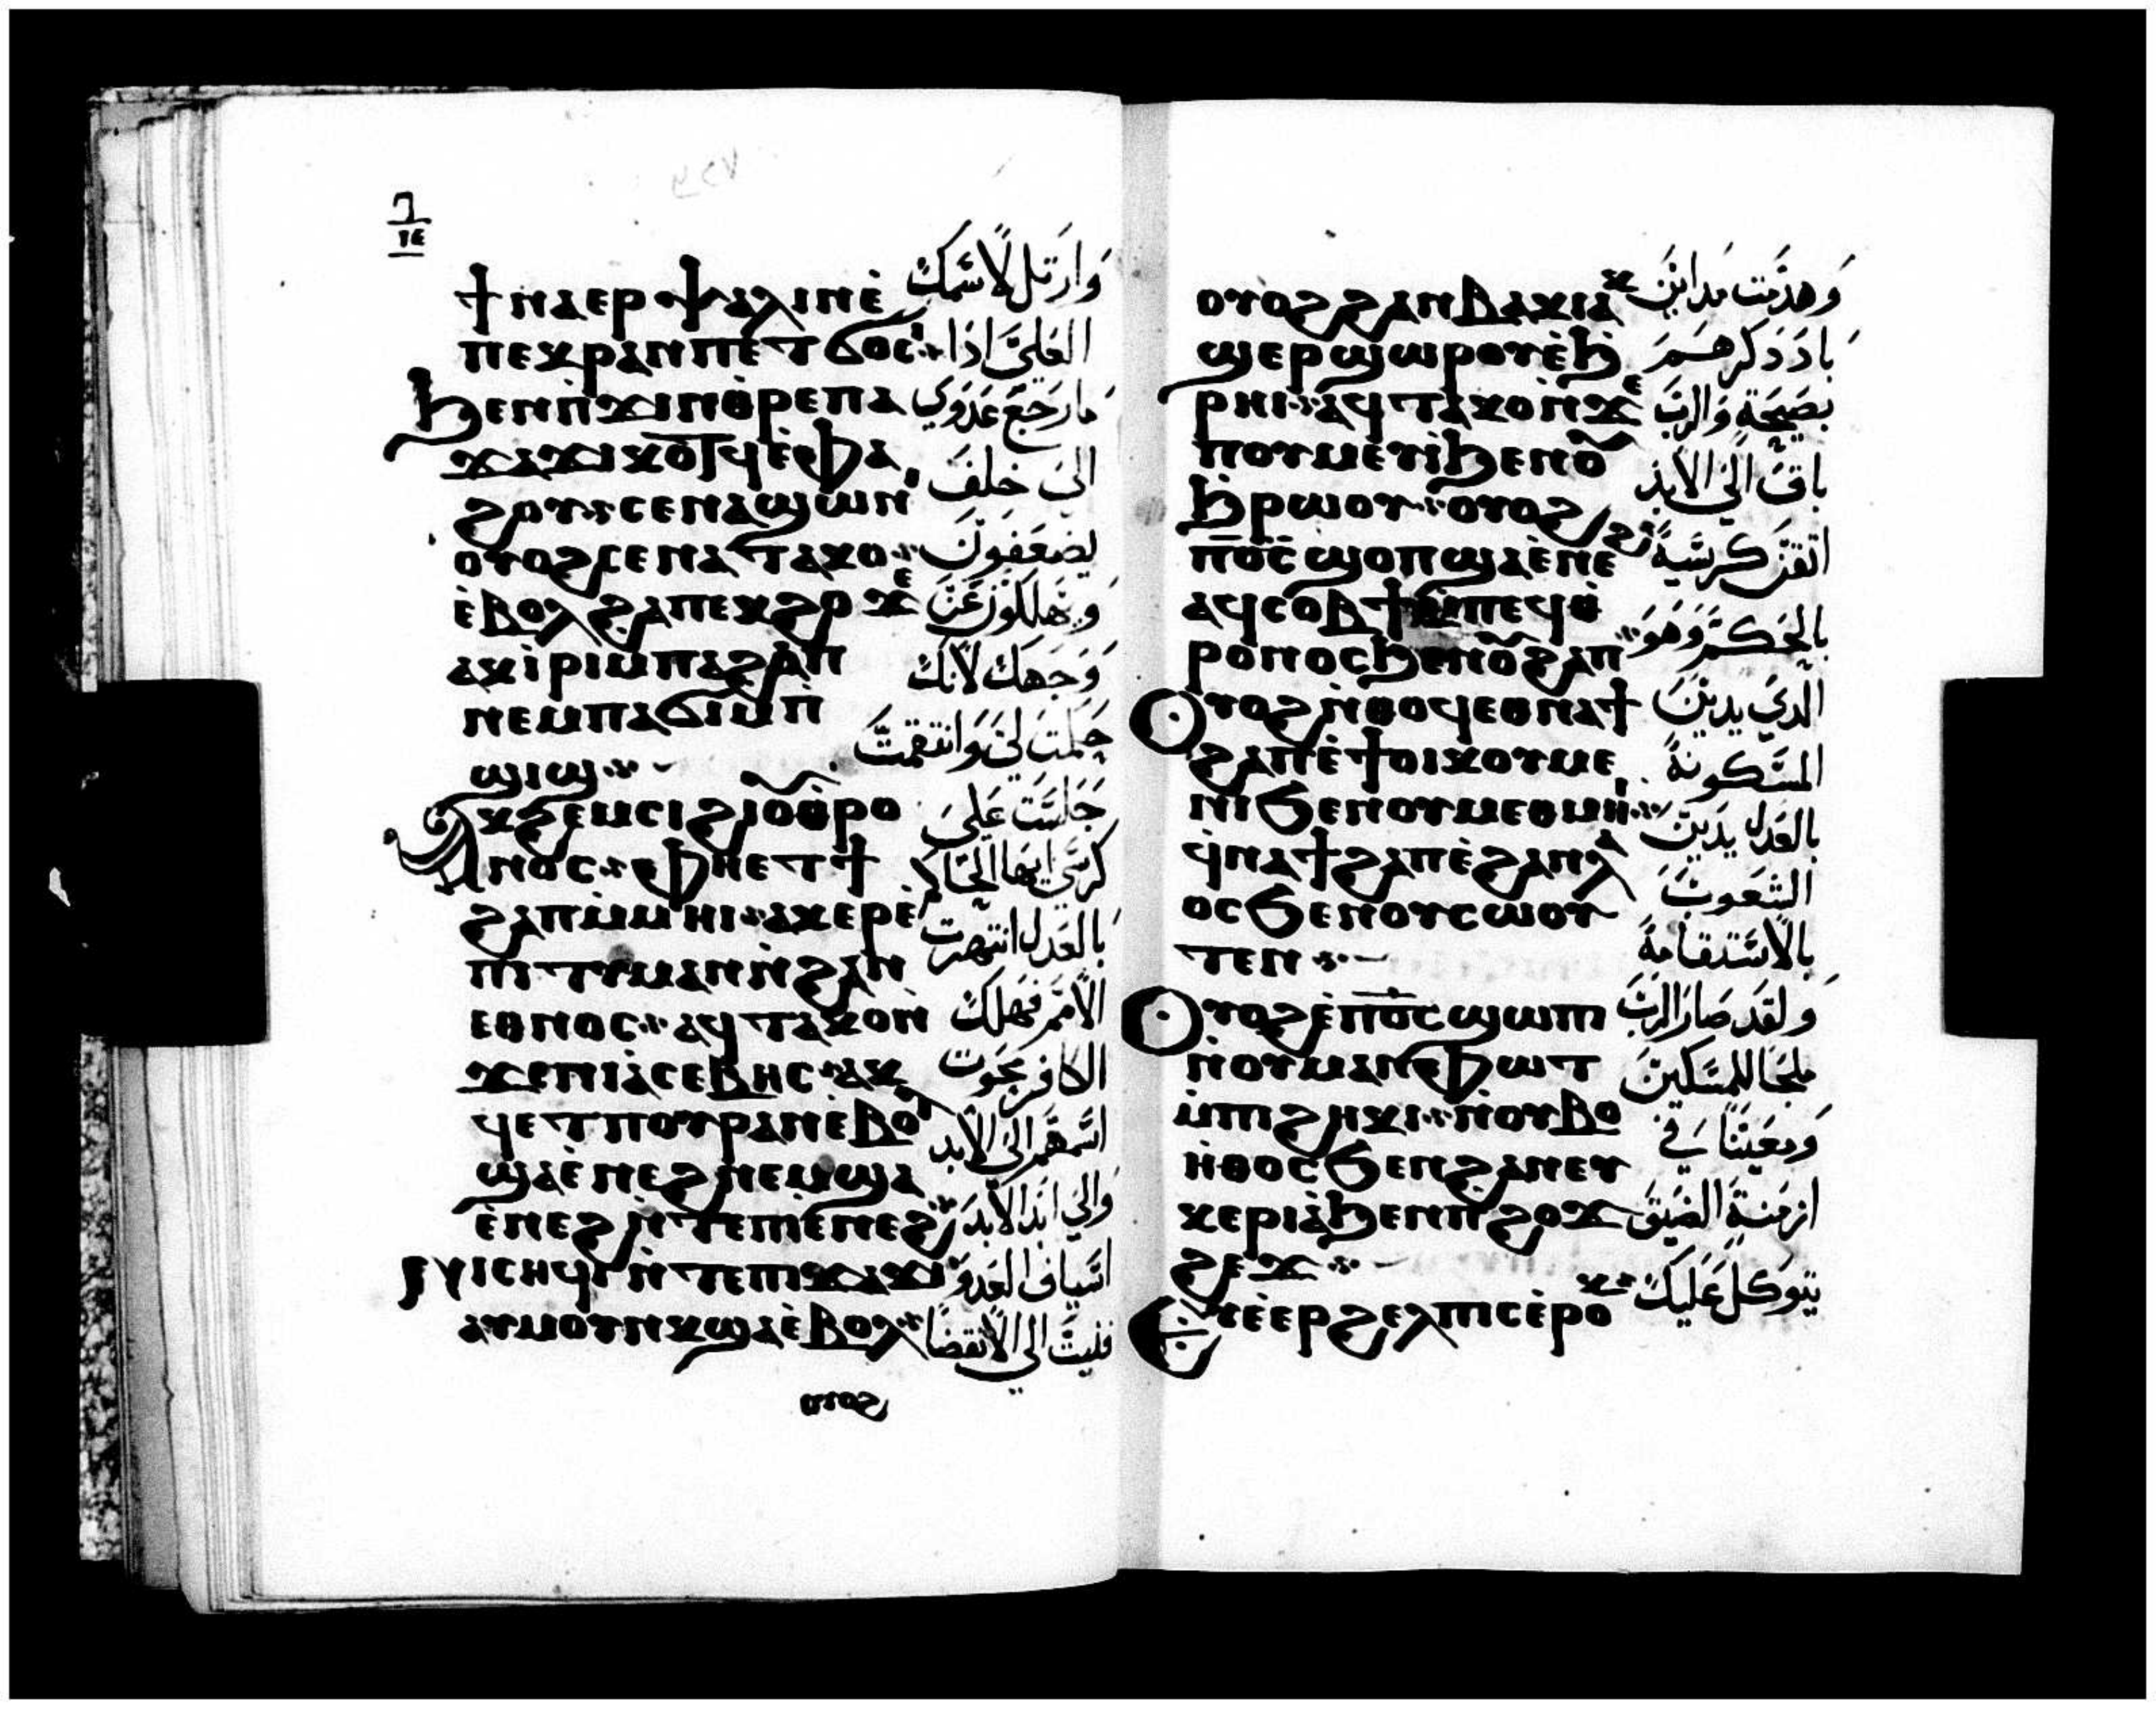 ϯⲛⲁⲉⲣⲯⲁⲗⲓⲛⲉ̀
ⲡⲉⲕⲣⲁⲛ ⲡⲉⲧϭⲟⲥⲓ
ϧⲉⲛⲡ̀ϫⲓⲛⲑ̀ⲣⲉⲡⲁ
ϫⲁϫⲓ ⲕⲟⲧϥ ⲉ̀ⲫⲁ
ϩⲟⲩ ⁘ ⲥⲉⲛⲁϣⲱⲛⲓ
ⲟⲩⲟϩ ⲥⲉⲛⲁⲧⲁⲕⲟ ⁘
ⲉ̀ⲃⲟⲗ ϩⲁ ⲡⲉⲕϩⲟ ϫⲉ
ⲁⲕⲓ̀ⲣⲓ ⲙⲡⲁϩⲁⲡ
ⲛⲉⲙ ⲡⲁϭⲓⲙⲡ̀
ϣⲓϣ ⁘
ⲁⲕϩⲉⲙⲥⲓ ϩⲓⲟⲩⲑ̀ⲣⲟ
ⲛⲟⲥ ⁘ ⲫⲏⲉⲧϯ
ϩⲁⲡ ⲙ̀ⲙⲏⲓ ⁘ ⲁⲕⲉⲣⲉ̀
ⲡⲓⲧⲩⲙⲁⲛ ⲛ̀ϩⲁⲛ
ⲉⲑⲛⲟⲥ ⁘ ⲁϥⲧⲁⲕⲟ ⲛ̀
ϫⲉⲡⲓⲁ̀ⲥⲉⲃⲏⲥ ⁘ ⲁⲕ
ϥⲉⲧ ⲡⲟⲩⲣⲁⲛ ⲉ̀ⲃⲟⲗ
ϣⲁ ⲉ̀ⲛⲉϩ ⲛⲉⲙ ϣⲁ
ⲉ̀ⲛⲉϩ ⲛ̀ⲧⲉ ⲡⲓⲉ̀ⲛⲉϩ ⁘
ⲛⲓⲥⲏϥⲓ ⲛ̀ⲧⲉ ⲡⲓϫⲁϫⲓ
ⲁⲩⲙⲟⲩⲛⲕ ϣⲁⲉ̀ⲃⲟⲗ ⁘
ⲟⲩⲟϩ
وارتل لاسمك
العلي اذا
ما رجع عدوي
الى خلف
يضعفون
ويهلكون عن
وجهك لانك
حملت لي وانتقمت
جلست على
كرسي ايها الحاكم
بالعدل انتهرت
الامم فهلك
الكافر محوت
اسمهم الى الابد
والى ابد الابد
اسياف العدو
فنيت الى الانقضا
ⲟⲩⲟϩ ϩⲁⲛⲃⲁⲕⲓⲁ
ϣⲉⲣϣⲱⲣⲟⲩ ⲉ̀ϧ
ⲣⲏⲓ ⁘ ⲁϥⲧⲁⲕⲟ ⲛ̀ϫⲉ
ⲡⲟⲩⲙⲉⲩⲓ̀ ϧⲉⲛⲟⲩ
ϧⲣⲱⲟⲩ ⁘ ⲟⲩⲟϩ
ⲡⲟ̅ⲥ̅ ϣⲟⲡ ϣⲁ ⲉ̀ⲛⲉϩ
ⲁϥⲥⲟⲃϯ ⲙ̀ⲡⲉϥⲑ̀
ⲣⲟⲛⲟⲥ ϧⲉⲛⲟⲩϩⲁⲡ
ⲟⲩⲟϩ ⲛ̀ⲑⲟϥ ⲉⲑⲛⲁϯ
ϩⲁⲡ ⲉ̀ϯⲟⲓⲕⲟⲩⲙⲉ
ⲛⲓ ϧⲉⲛⲟⲩⲙⲉⲑⲙⲏⲓ ⁘
ϥ̀ⲛⲁϯϩⲁⲡ ⲉ̀ϩⲁⲛⲗⲁ
ⲟⲥ ϧⲉⲛⲟⲩⲥⲱⲟⲩ
ⲧⲉⲛ ⁘
ⲟⲩⲟϩ ⲉ̀ⲡⲟ̅ⲥ̅ ϣⲱⲡⲓ
ⲛ̀ⲟⲩⲙⲁⲛⲫⲱⲧ
ⲙ̀ⲡⲓϩⲏⲕⲓ ⁘ ⲛ̀ⲟⲩⲃⲟ
ⲏ̀ⲑⲟⲥ ϧⲉⲛϩⲁⲛⲉⲩ
ⲕⲉⲣⲓⲁ̀ ϧⲉⲛⲡϩⲟϫ
ϩⲉϫ ⁘
ⲉⲩⲉ̀ⲉⲣϩⲉⲗⲡⲓⲥ ⲉ̀ⲣⲟ
وهدمت مداين
باد ذكرهم
بضجة والرب
باقي الى الابد
اتقن كرسيه
بالحكم وهو
الذي يدين
المسكونة
بالعدل يدين
الشعوب
بالاستقامة
ولقد صار الرب
ملجا للمسكين
ومعينا في
ازمنة الضيق
يتوكل عليك